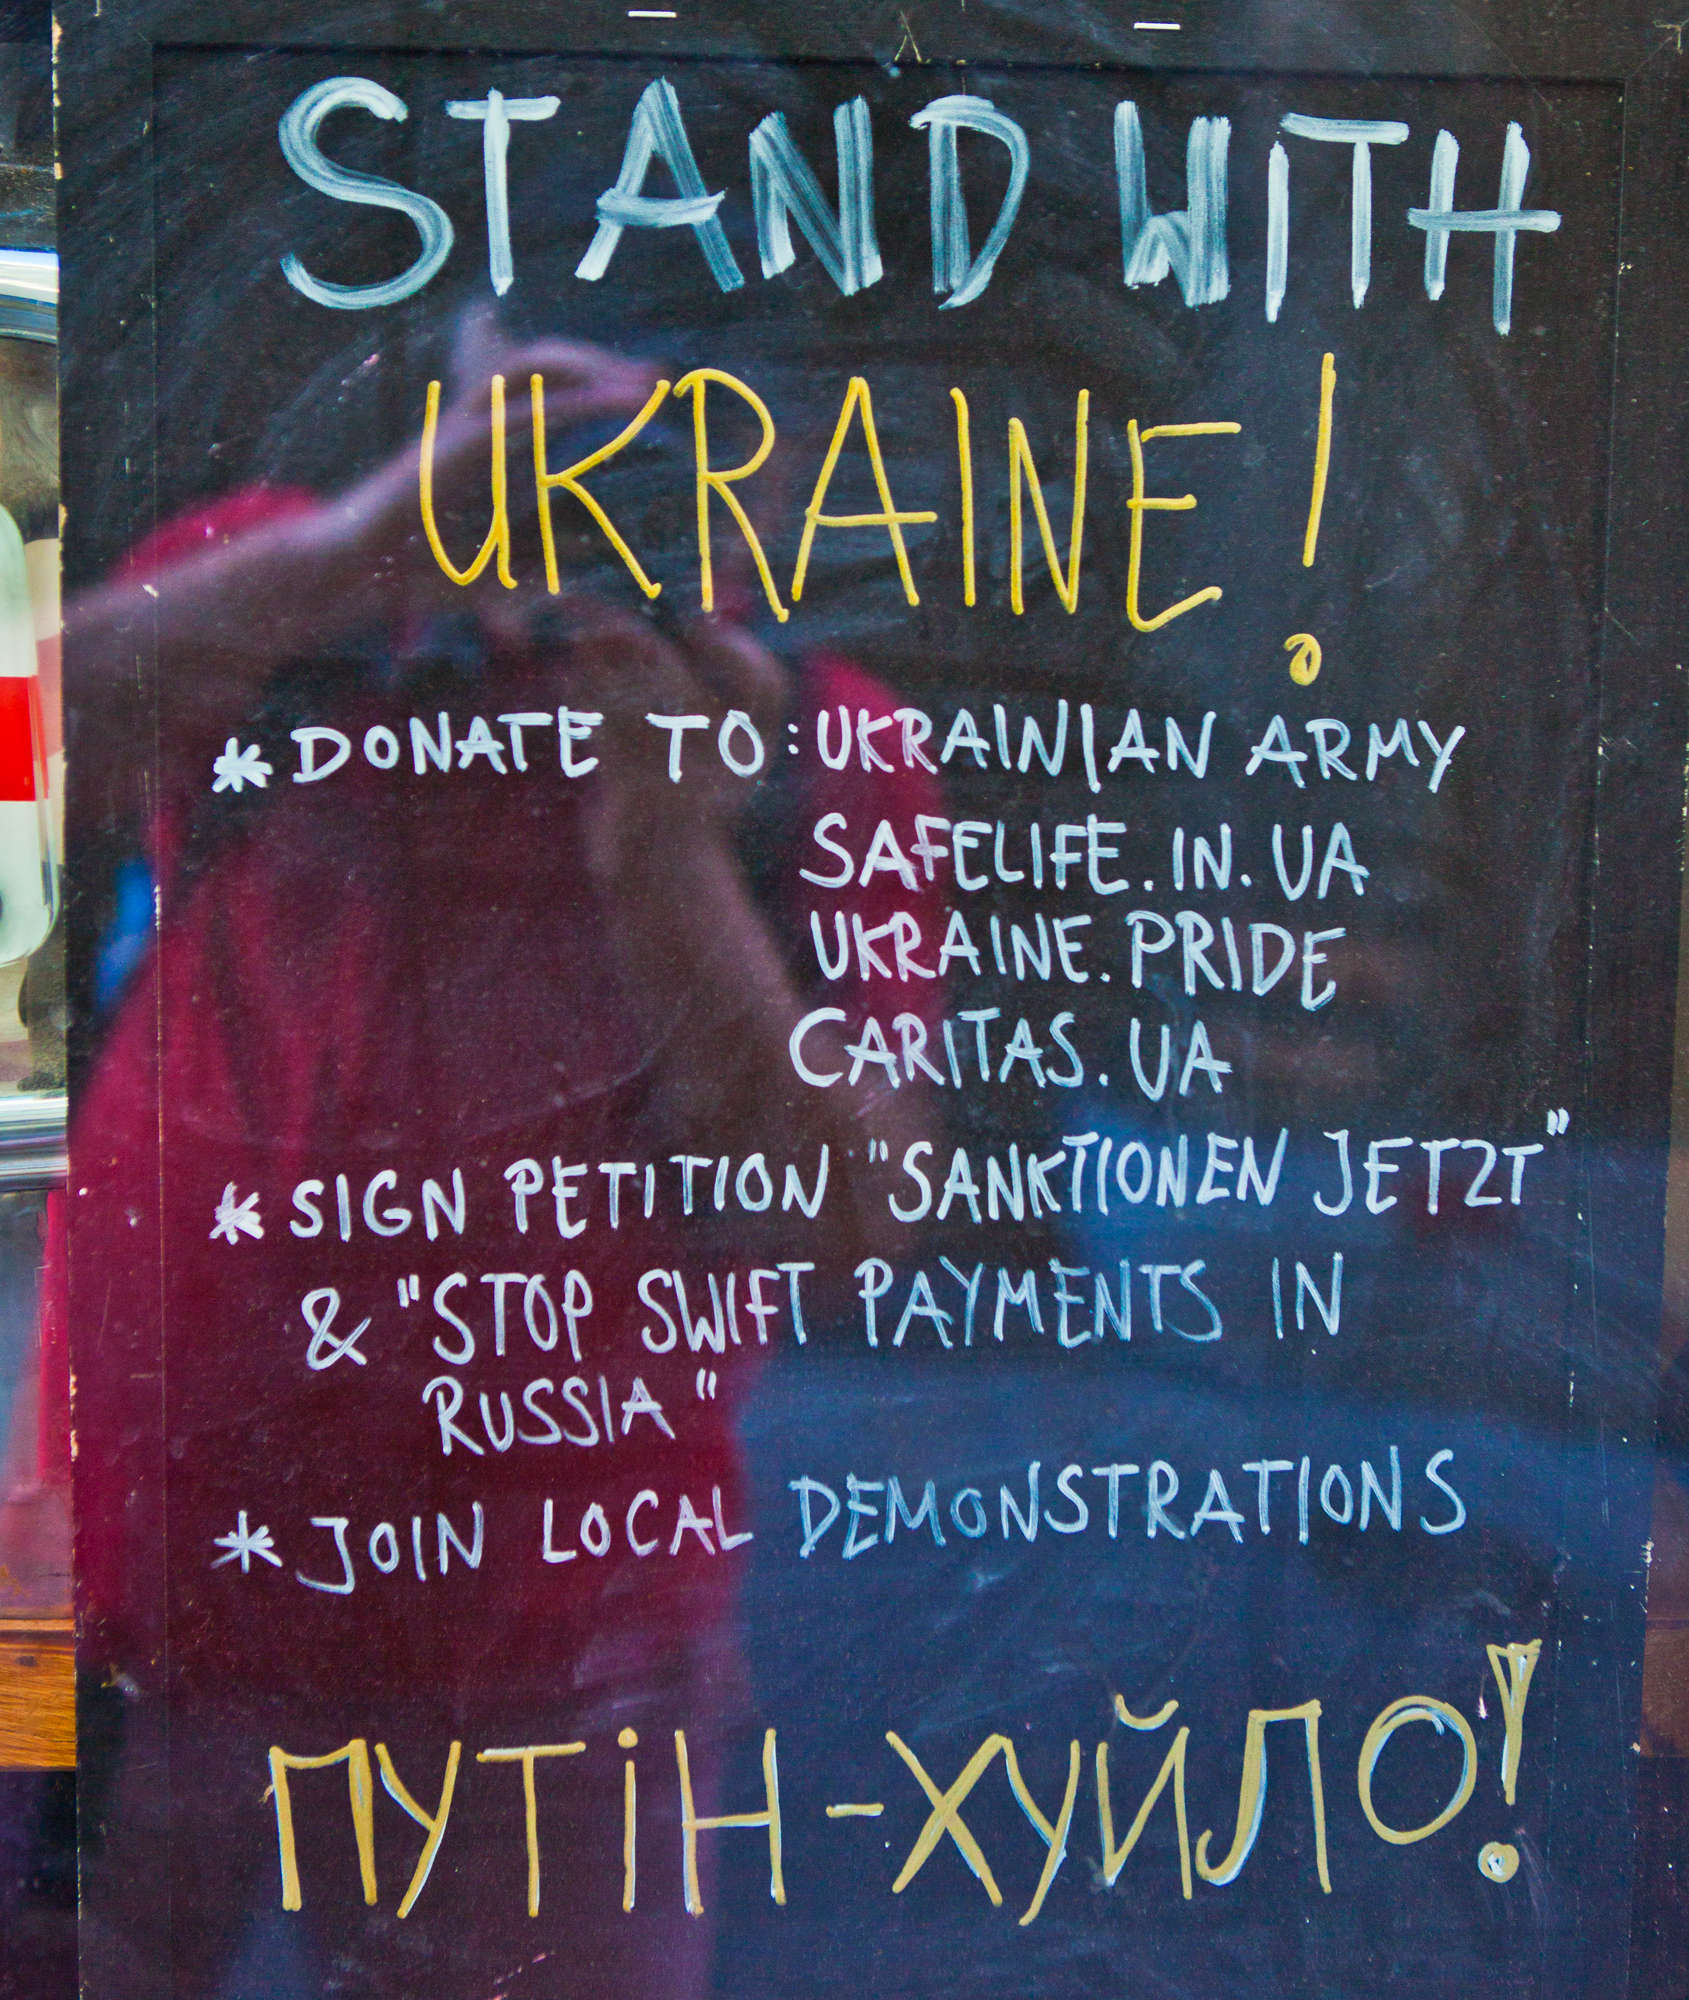 STAND WITH
UKRAINE!
* DONATE TO: UKRAINIAN ARMY
SAFELIFE.IN.UA
UKRAINE.PRIDE
CARITAS.UA
* SIGN PETITION "SANKTIONEN JETZT"
& "STOP SWIFT PAYMENTS IN
RUSSIA"
* JOIN LOCAL DEMONSTRATIONS
ПУТІН-ХУЙЛО!